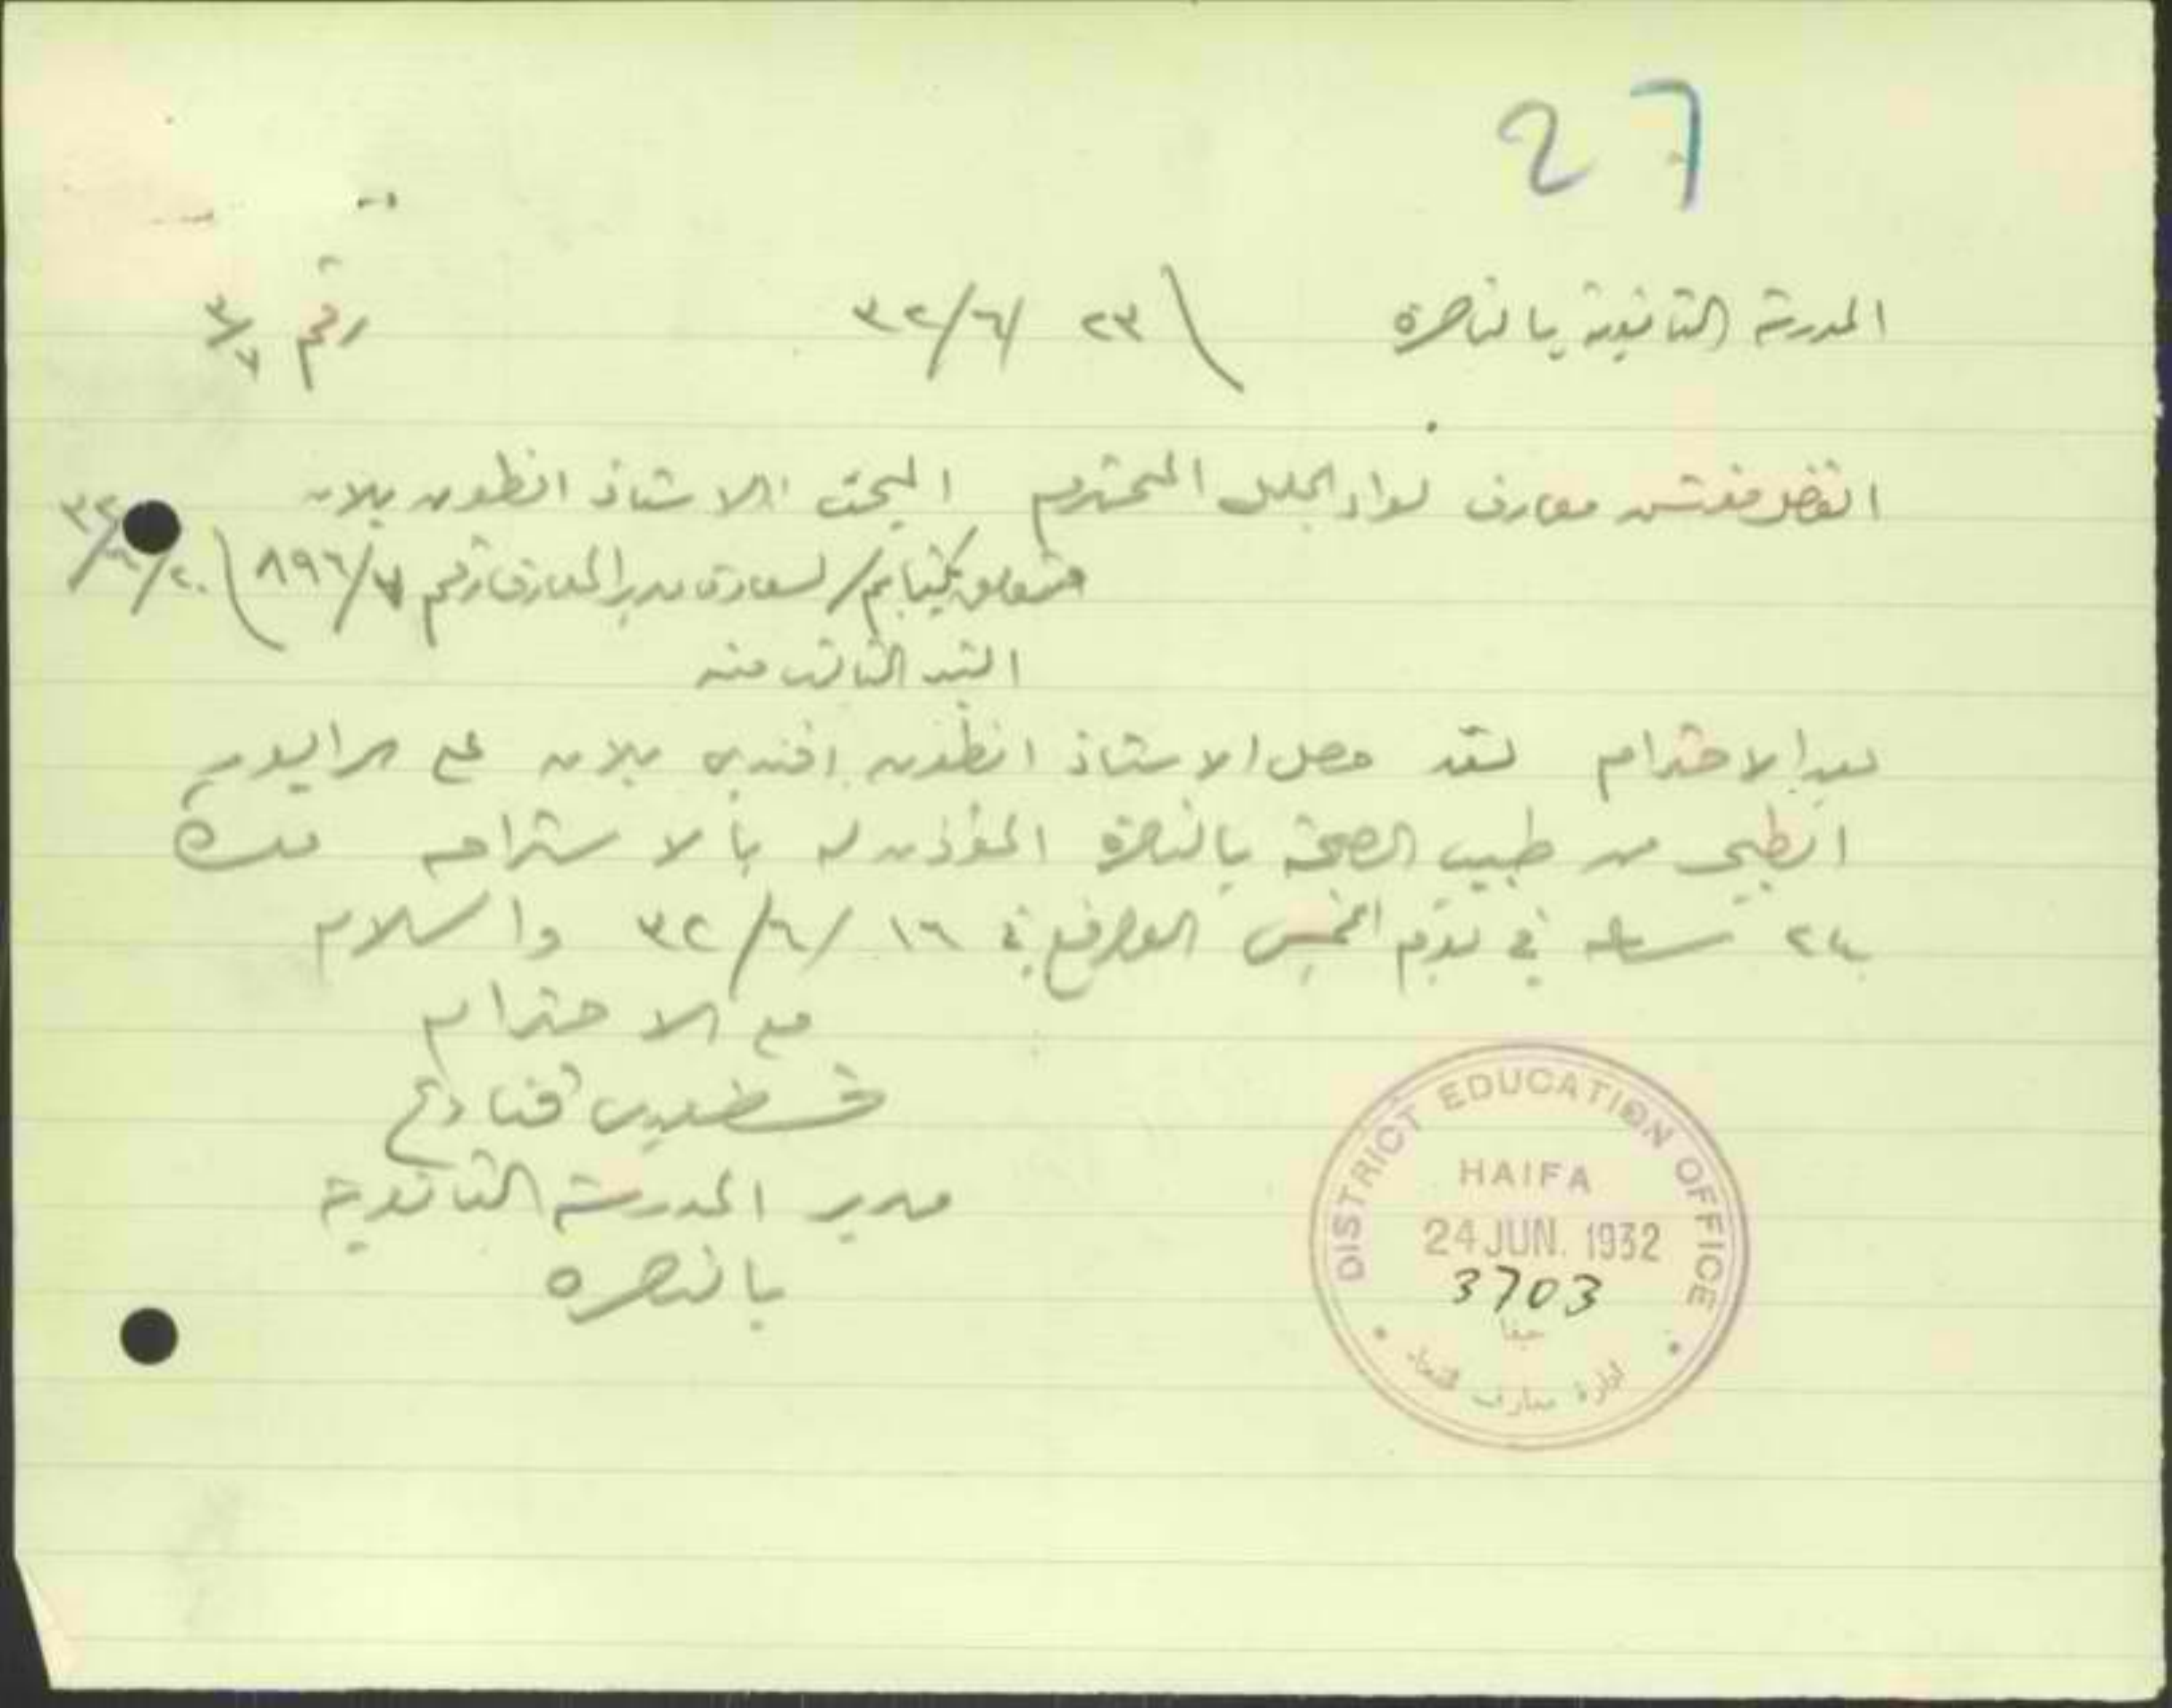 27
المدرسة الثانوية بالناصرة ٢٣/٦/٣٢ رقم ٣/٧
مفتش معارف لواء الجليل المحترم المبحث الاستاذ انطون بلان
متعلق بكتابكم / لسعادة مدير المعارف رقم ٨٩٦/٧ ٢٠/٦/٣٢
البند الثالث منه
بعد الاحترام لقد حصل الاستاذ انطون افندي بلان على الرابور
الطبي من طبيب الصحة بالناصرة المؤذن له بالاستراحه مدة
٢٤ ساعه في يوم الخميس الواقع في ١٦/٦/٣٢ والسلام
مع الاحترام
قسطندي قنازع
مدير المدرسة الثانوية
بالناصره
DISTRICT EDUCATION OFFICE
HAIFA
24 JUN. 1932
3703
حيفا
ادارة معارف القضاء